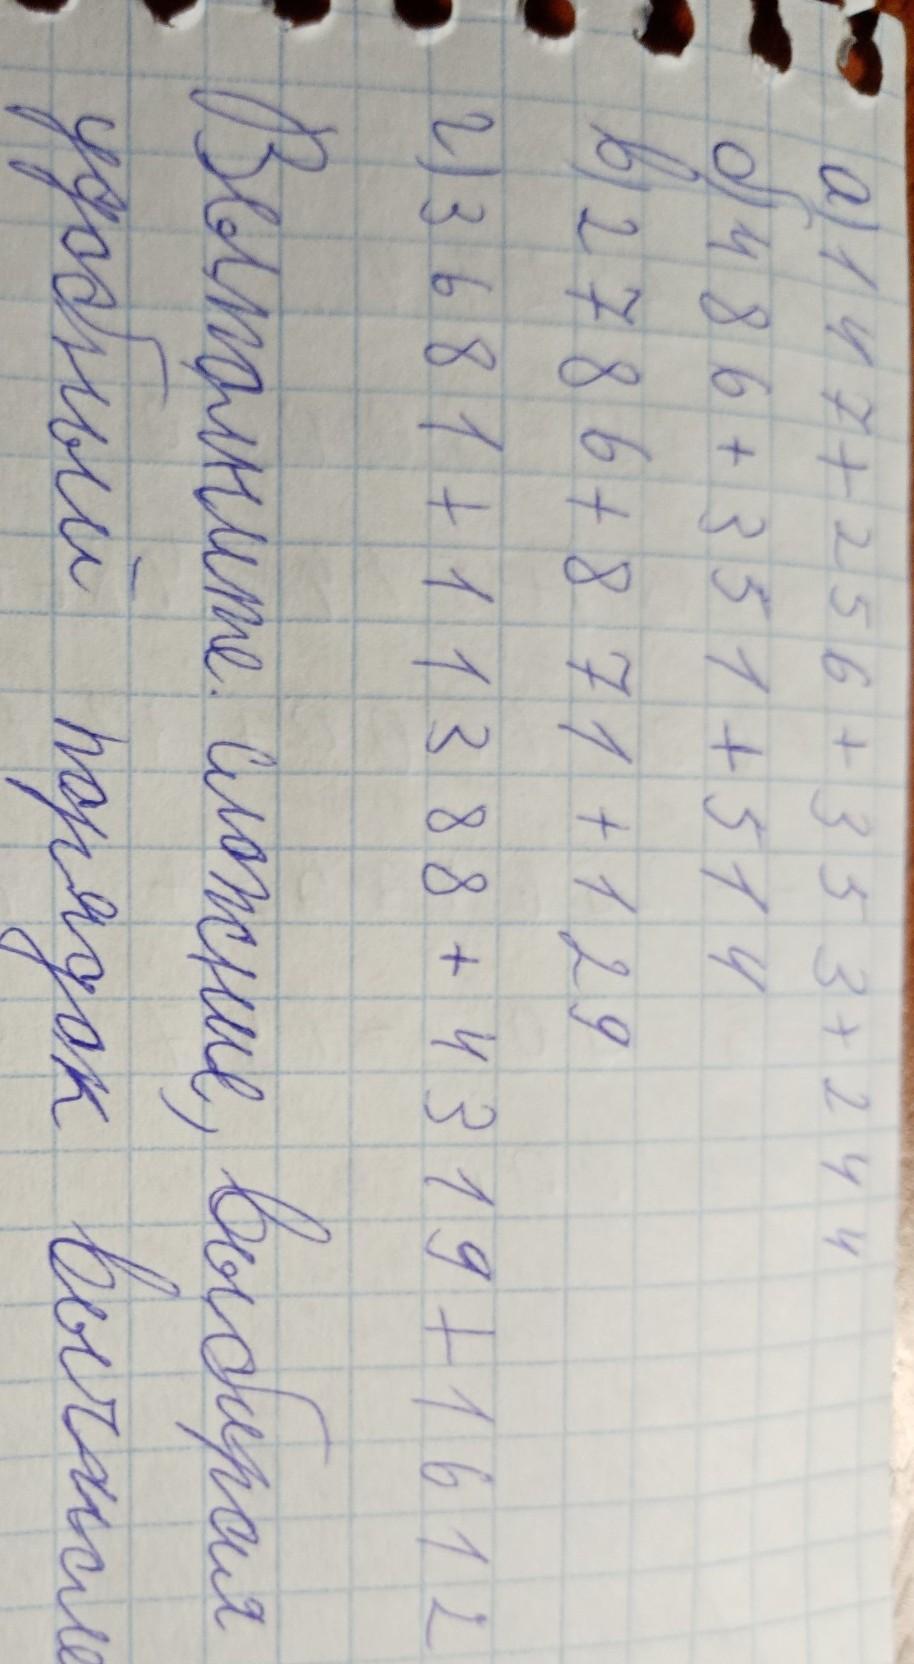 а) 147+256+3553+244
б) 486+3551+514
в) 2786+871+129
г) 3681+11388+4319+1612
Выполните сложние, выбирая
удобный порядок вычисле